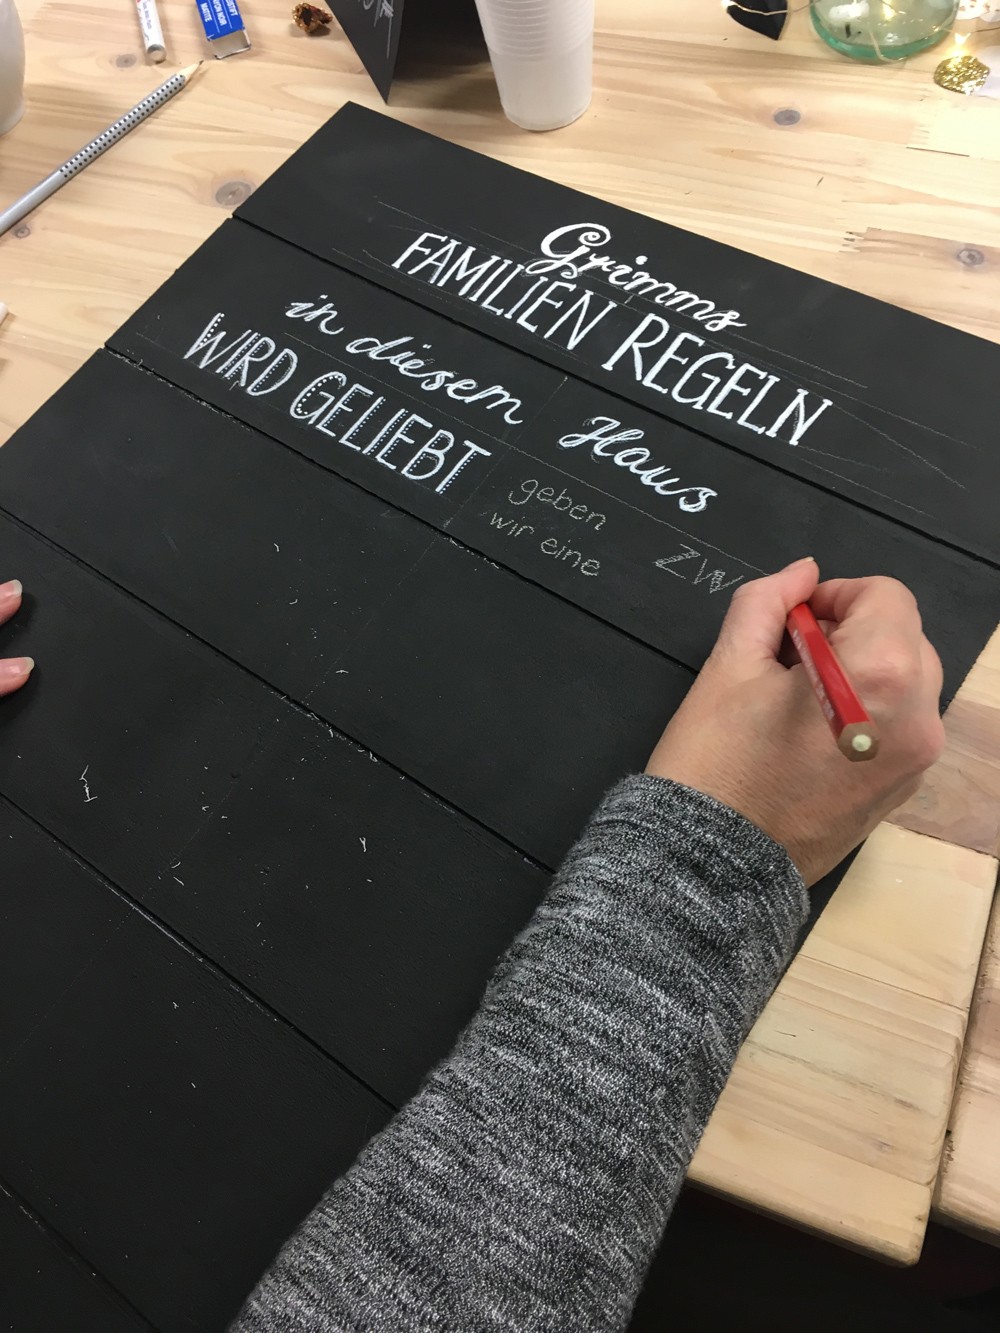 Grimms
FAMILIEN REGELN
in diesem Haus
WIRD GELIEBT
geben
wir eine ZW